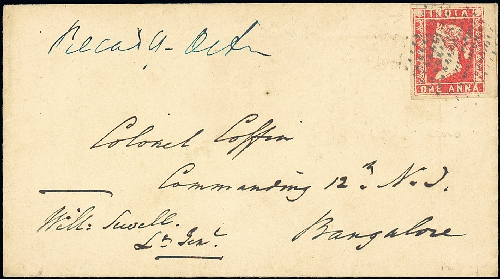 INDIA
ONE ANNA
Colonel Coffin
Commanding 12th N.I.
Will: Sewell.
Lt Genl.
Bangalore